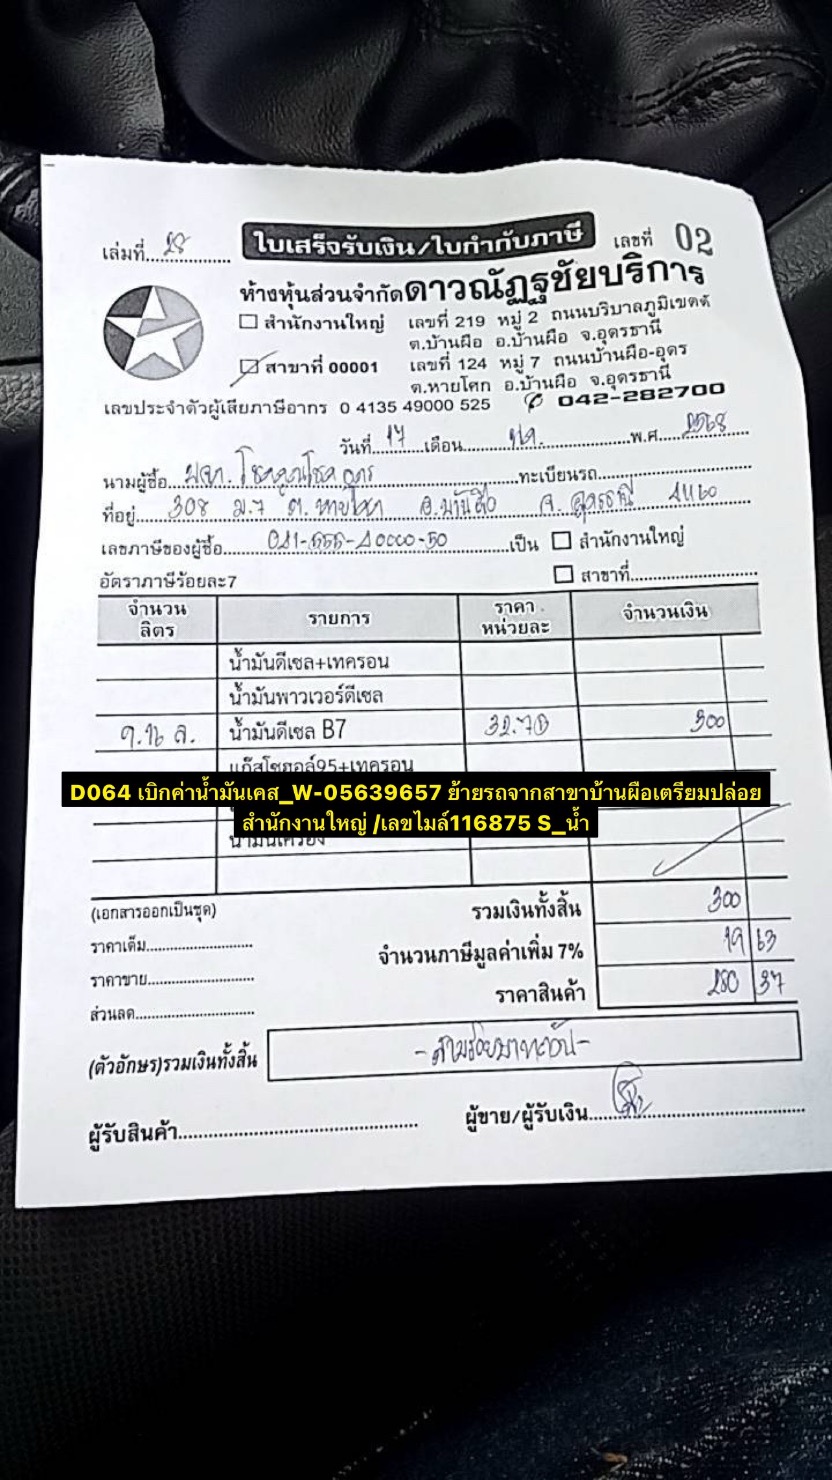 ใบเสร็จรับเงิน/ใบกำกับภาษี
เล่มที่ 28 เลขที่ 02
ห้างหุ้นส่วนจำกัดดาวณัฏฐชัยบริการ
สำนักงานใหญ่ เลขที่ 219 หมู่ 2 ถนนบริบาลภูมิเขตต์
ต.บ้านผือ อ.บ้านผือ จ.อุดรธานี
สาขาที่ 00001 เลขที่ 124 หมู่ 7 ถนนบ้านผือ-อุดร
ต.หายโศก อ.บ้านผือ จ.อุดรธานี
เลขประจำตัวผู้เสียภาษีอากร 0 4135 49000 525 042-282700
วันที่ 17 เดือน พ.ศ. 2568
นามผู้ซื้อ ทะเบียนรถ
ที่อยู่ 308 ม.7 ต. หายโศก อ.บ้านผือ จ. อุดรธานี 41160
เลขภาษีของผู้ซื้อ เป็น สำนักงานใหญ่
อัตราภาษีร้อยละ7 สาขาที่
จำนวน ลิตร รายการ ราคา หน่วยละ จำนวนเงิน
น้ำมันดีเซล+เทครอน
น้ำมันพาวเวอร์ดีเซล
9.16 ล. น้ำมันดีเซล B7 32.70 300
แก๊สโซฮอล์95+เทครอน
D064 เบิกค่าน้ำมันเคส_W-05639657 ย้ายรถจากสาขาบ้านผือเตรียมปล่อย
สำนักงานใหญ่ /เลขไมล์116875 S_น้ำ
น้ำมันเครื่อง
(เอกสารออกเป็นชุด) รวมเงินทั้งสิ้น 300
ราคาเต็ม จำนวนภาษีมูลค่าเพิ่ม 7% 19 63
ราคาขาย ราคาสินค้า 280 37
ส่วนลด
(ตัวอักษร)รวมเงินทั้งสิ้น -สามร้อยบาทถ้วน-
ผู้รับสินค้า ผู้ขาย/ผู้รับเงิน